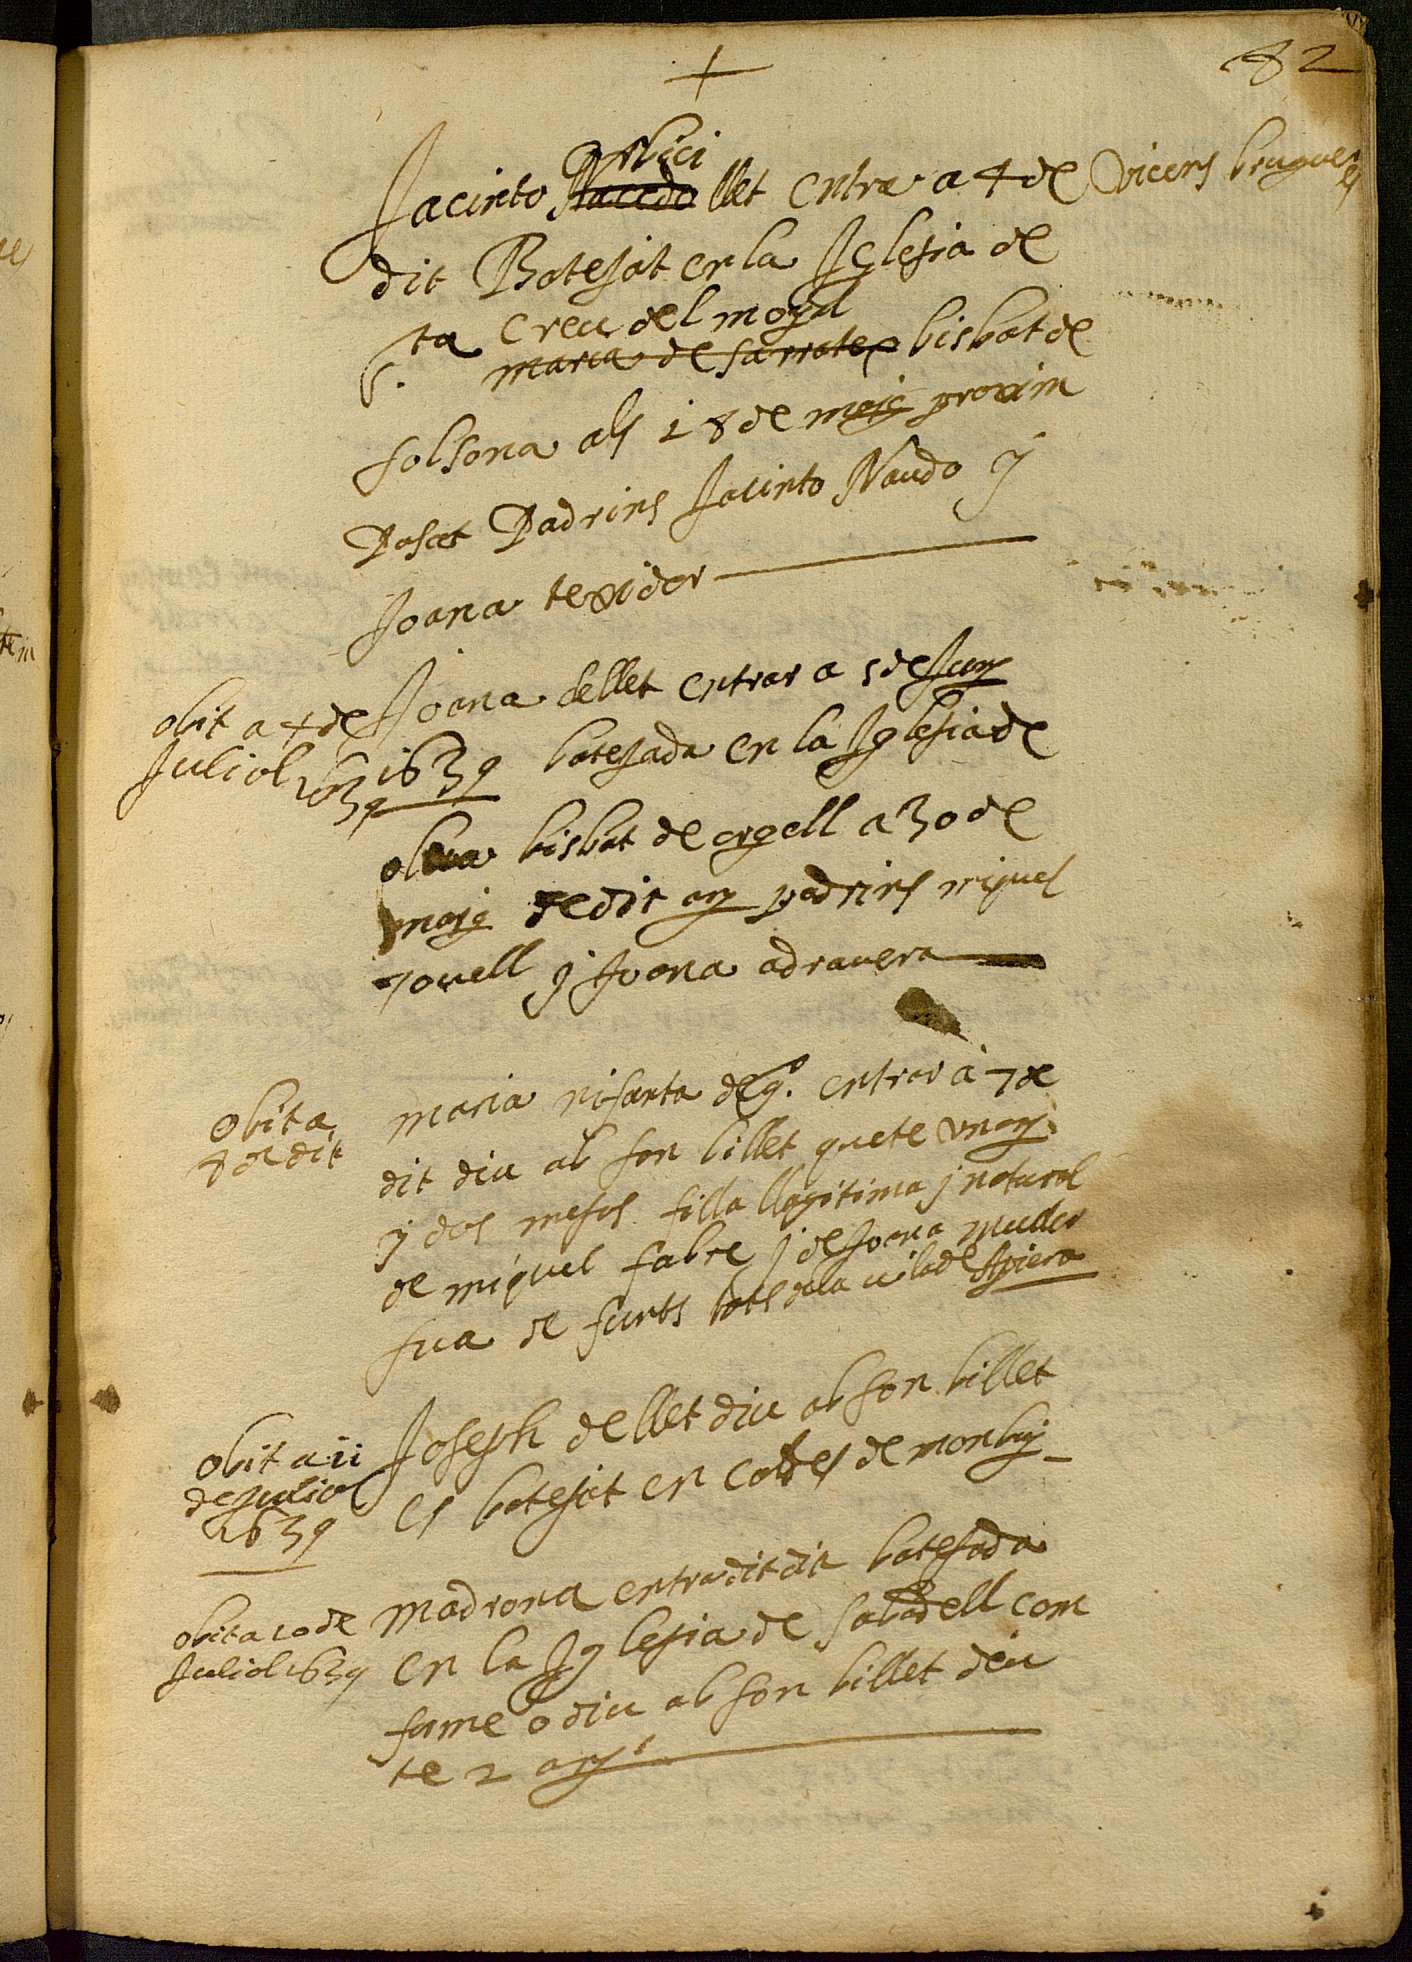 82
Jacinto llet entra a 4 de Vicens bruguer
dit Batejat en la Iglesia de
S.ta Creu del
maria de sarrateix bisbat de
solsona als 18 de maig proxim
Pasat Padrins Jacinto Naudo y
Joana texidor
obit a 4 de
Juliol 1639
Joana de llet entrar a 5 de Juny
1639 batejada en la Iglesia de
oliva bisbat de orgell a 30 de
maig de dit any padrins miquel
jovell y Joana adravera
obit a
8 de dit
maria entrar a 7 de
dit diu ab son billet que te un any
y dos mesos filla llagitima y natural
de miquel fabre y de Joana muller
sua de tots de la vila de Apiera
obit a 11
de Juliol
1639
Joseph de llet diu ab son billet
es batejat en caldes de monbuy
obit a 10 de
Juliol 1639
madrona entra dit dit batejada
en la Iglesia de sabadell com
diu ab son billet diu
te 2 anys